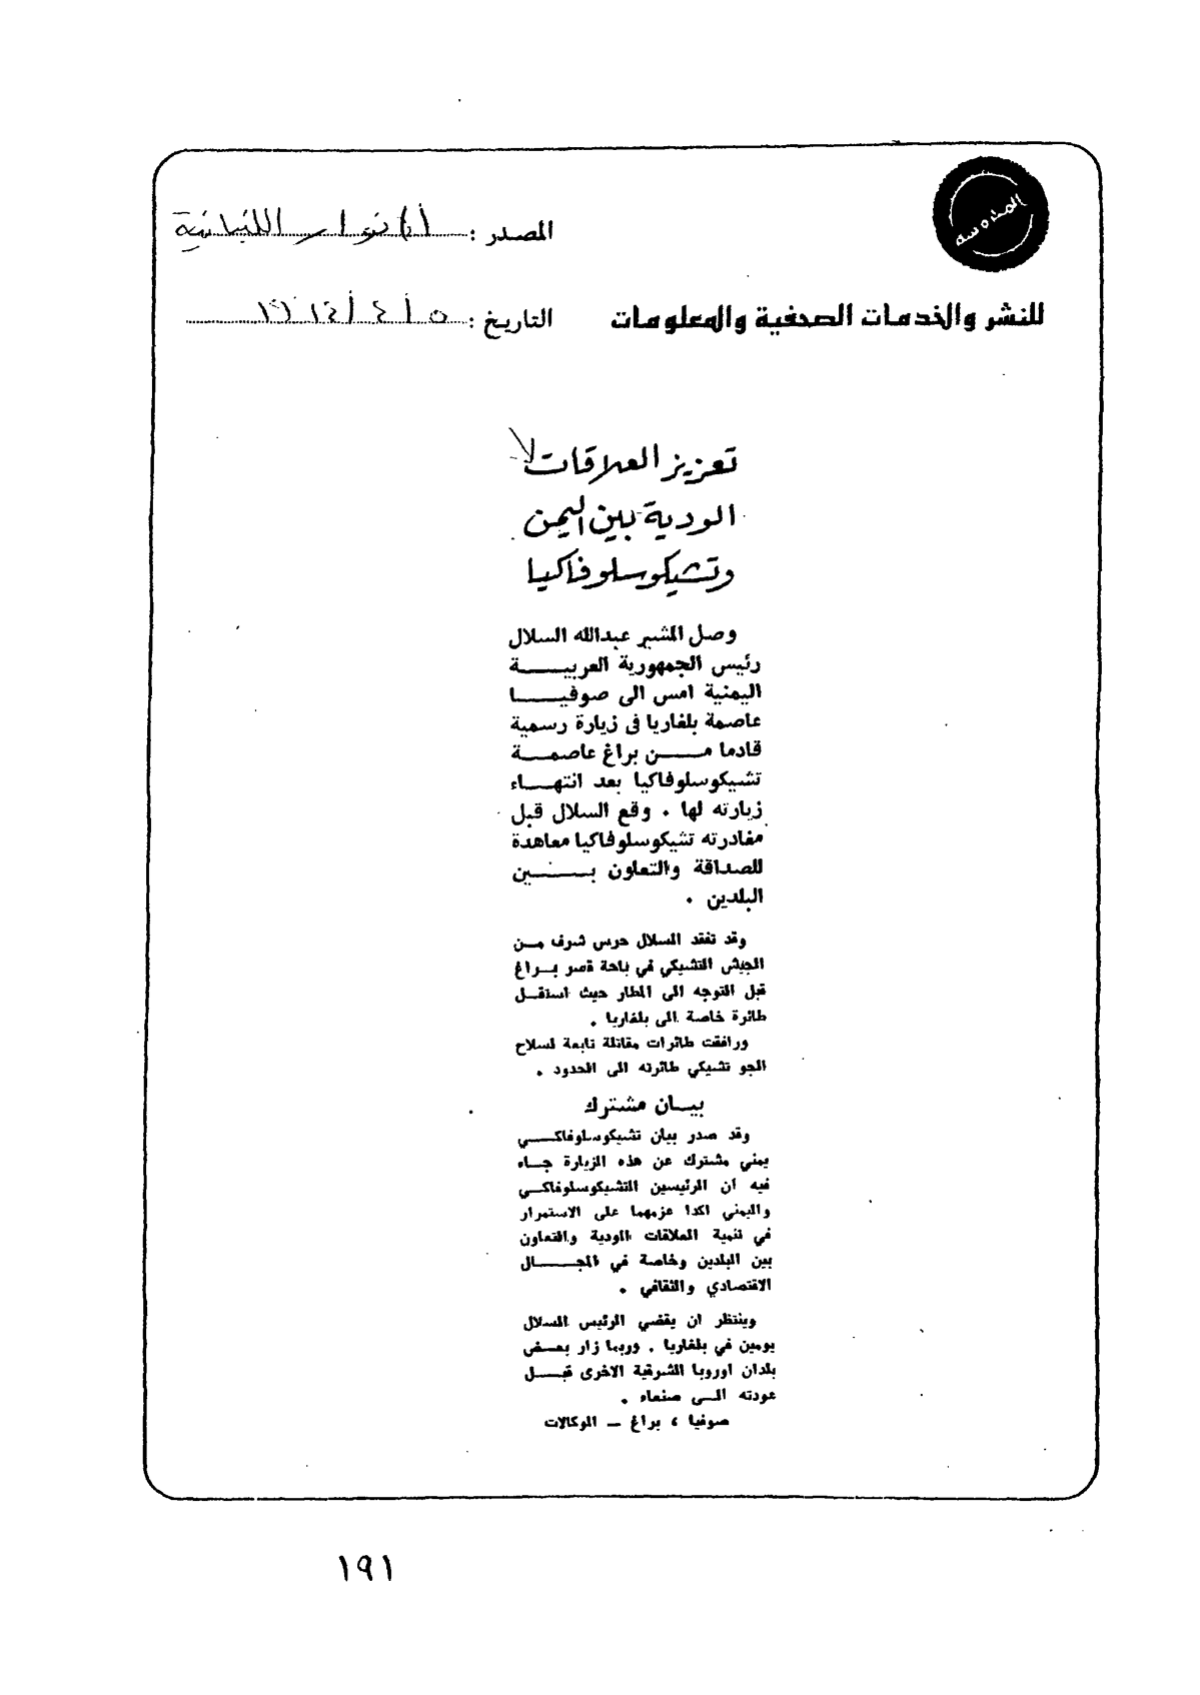 المدرسة
المصدر : الأنوار اللبنانية
للنشر والخدمات الصحفية والمعلومات
التاريخ : ٥ / ٤ /
تعزيز العلاقات
الودية بين اليمن
وتشيكوسلوفاكيا
وصل المشير عبدالله السلال
رئيس الجمهورية العربيـــــة
اليمنية امس الى صوفيـــــا
عاصمة بلغاريا فى زيارة رسمية
قادما مـــــن براغ عاصمـــة
تشيكوسلوفاكيا بعد انتهـــاء
زيارته لها . وقع السلال قبل
مغادرته تشيكوسلوفاكيا معاهدة
للصداقة والتعاون بـــــين
البلدين .
وقد تفقد السلال حرس شرف مـن
الجيش التشيكي في باحة قصر بـراغ
قبل التوجه الى المطار حيث استقـل
طائرة خاصة الى بلغاريا .
ورافقت طائرات مقاتلة تابعة لسلاح
الجو تشيكي طائرته الى الحدود .
بيــان مشترك
وقد صدر بيان تشيكوسلوفاكـــي
يمني مشترك عن هذه الزيارة جـاء
فيه ان الرئيسين التشيكوسلوفاكـي
واليمني اكدا عزمهما على الاستمرار
في تنمية العلاقات الودية والتعاون
بين البلدين وخاصة في المجـــــال
الاقتصادي والثقافي .
وينتظر ان يقضي الرئيس السلال
يومين في بلغاريا . وربما زار بعـض
بلدان اوروبا الشرقية الاخرى قبـــل
عودته الـى صنعاء .
صوفيا ، براغ – الوكالات
١٩١